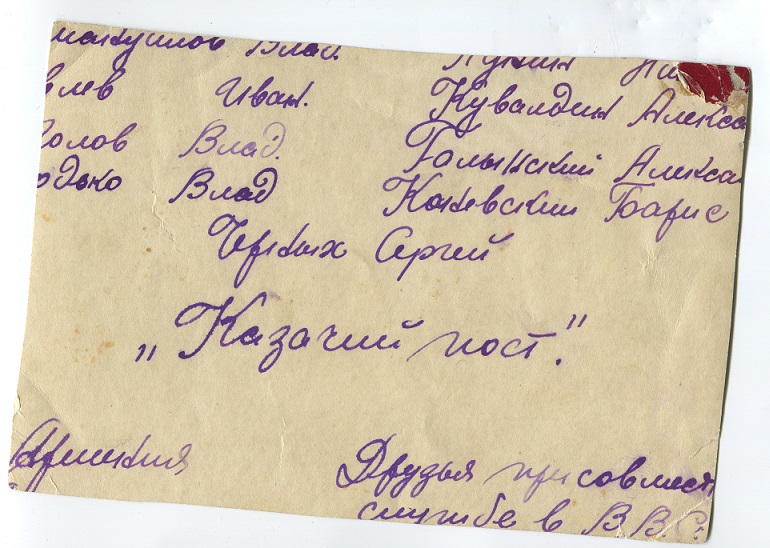 Влад.
влев Иван. Кувалдин Алекса
олов Влад. Голынский Алекса
одько Влад Каневский Борис
Черных Сергей
„Казачий пост."
Армения
Друзья при совмест
службе в В.В.С.